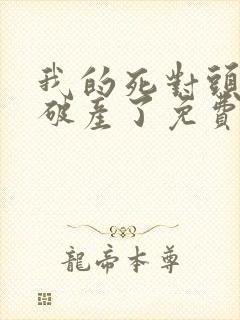 我的死對頭
破產了免費
龍帝本尊